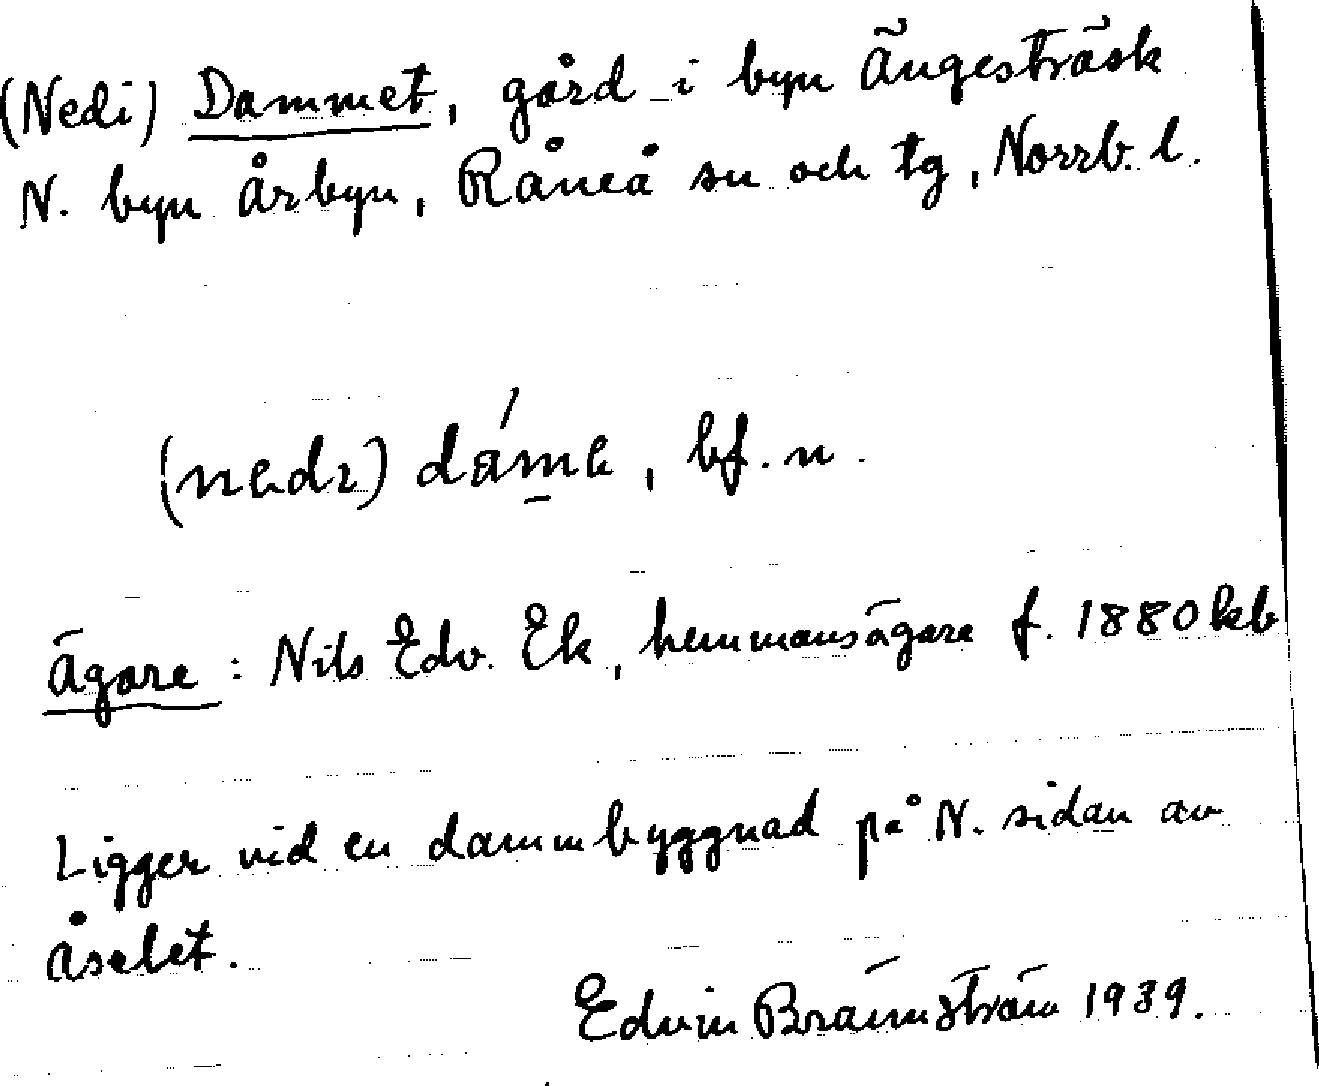 (Nedi) Dammet, gård i byn Ängesträsk
N. byn Årbyn, Råneå sn och tg, Norrb. l.
(nedɩ) dám̱e, bf. n.
Ägare: Nils Edv. Ek, hemmansägare f. 1880 kb
Ligger vid en dammbyggnad på N. sidan av
åselet.
Edvin Brännström 1939.